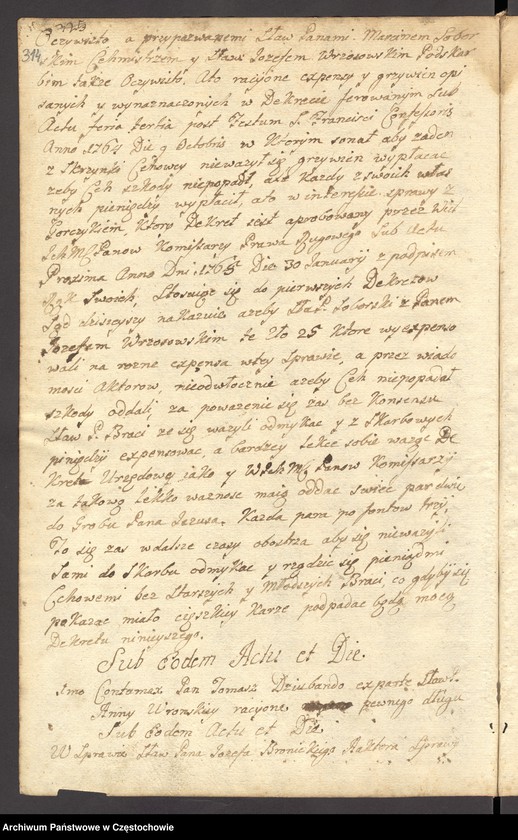 314
Oczywisto a przypozwanemi Sław Panami Maranem Sobor
skim Cehmistrzem y Sław Jozefem Wrzosowskim Podskar
bim także Oczywisto. Ato racyone expensy y grzywien opi
sanych y wyznaczonych w Dekrecie ferowanym Sub
Actu feria tertia post Festum S. Francisci Confessoris
Anno 1764 Die 9 Octobris w Ktorym sonat aby zaden
z Skrzynki Cehowey nieważył się grzywien wypłacac
żeby Ceh szkody niepopadł, ale każdy z swoich włas
nych pieniędzy wypłacił, ato w interesie sprawy z
Gorczyskiem Ktory Dekret iest aprobowany przez Wiel
Ich Mę Panow Komissarzy Prawa Sub Actu
Proxima Anno Dni 1765 Die 30 Januarij z podpisem
Rąk Swoich, Stosuiąc się do pierwszych Dekretow
Sąd dzisieyszy nakazuie ażeby Sła P. Soborski z Panem
Jozefem Wrzosowskim te Zło 25 Ktore wyexpenso
wali na rozne expensa w tey Sprawie, a przez wiado
mosci Aktorow, nieodwłocznie ażeby Ceh niepopadał
szkody oddali, za poważenie się zas bez Konsensu
Sław P. Braci ze się ważyli odmykac y z Skarbowych
pinięndzy expensowac, a bardzey lekce sobie ważąc De
Kreta Urzędowe jako y W Ich Mę Panow Komissarzy
za takową lekko ważnosc maią oddac swiec par dwie
do Grobu Pana Jezusa. Kazda para po fontow trzy,
To się zas w dalsze czasy obostrza aby się nieważyli
Sami do Skarbu odmykac y rządzic się pieniądmi
Cehowemi bez Starszych y Młodszych Braci, co gdyby się
pokazac miało cięszkiey Karze podpadac będą mocą
Dekretu ninieyszego.
Sub eodem Actu et Die
1mo Contomax Pan Tomasz Dziubando exparte Sław.
Anny Wronskiey racyone pewnego długu
Sub eodem Actu et Die
W Sprawie Sław Pana Jozefa Bronickiego Aktora Sprawy
Archiwum Państwowe w Częstochowie